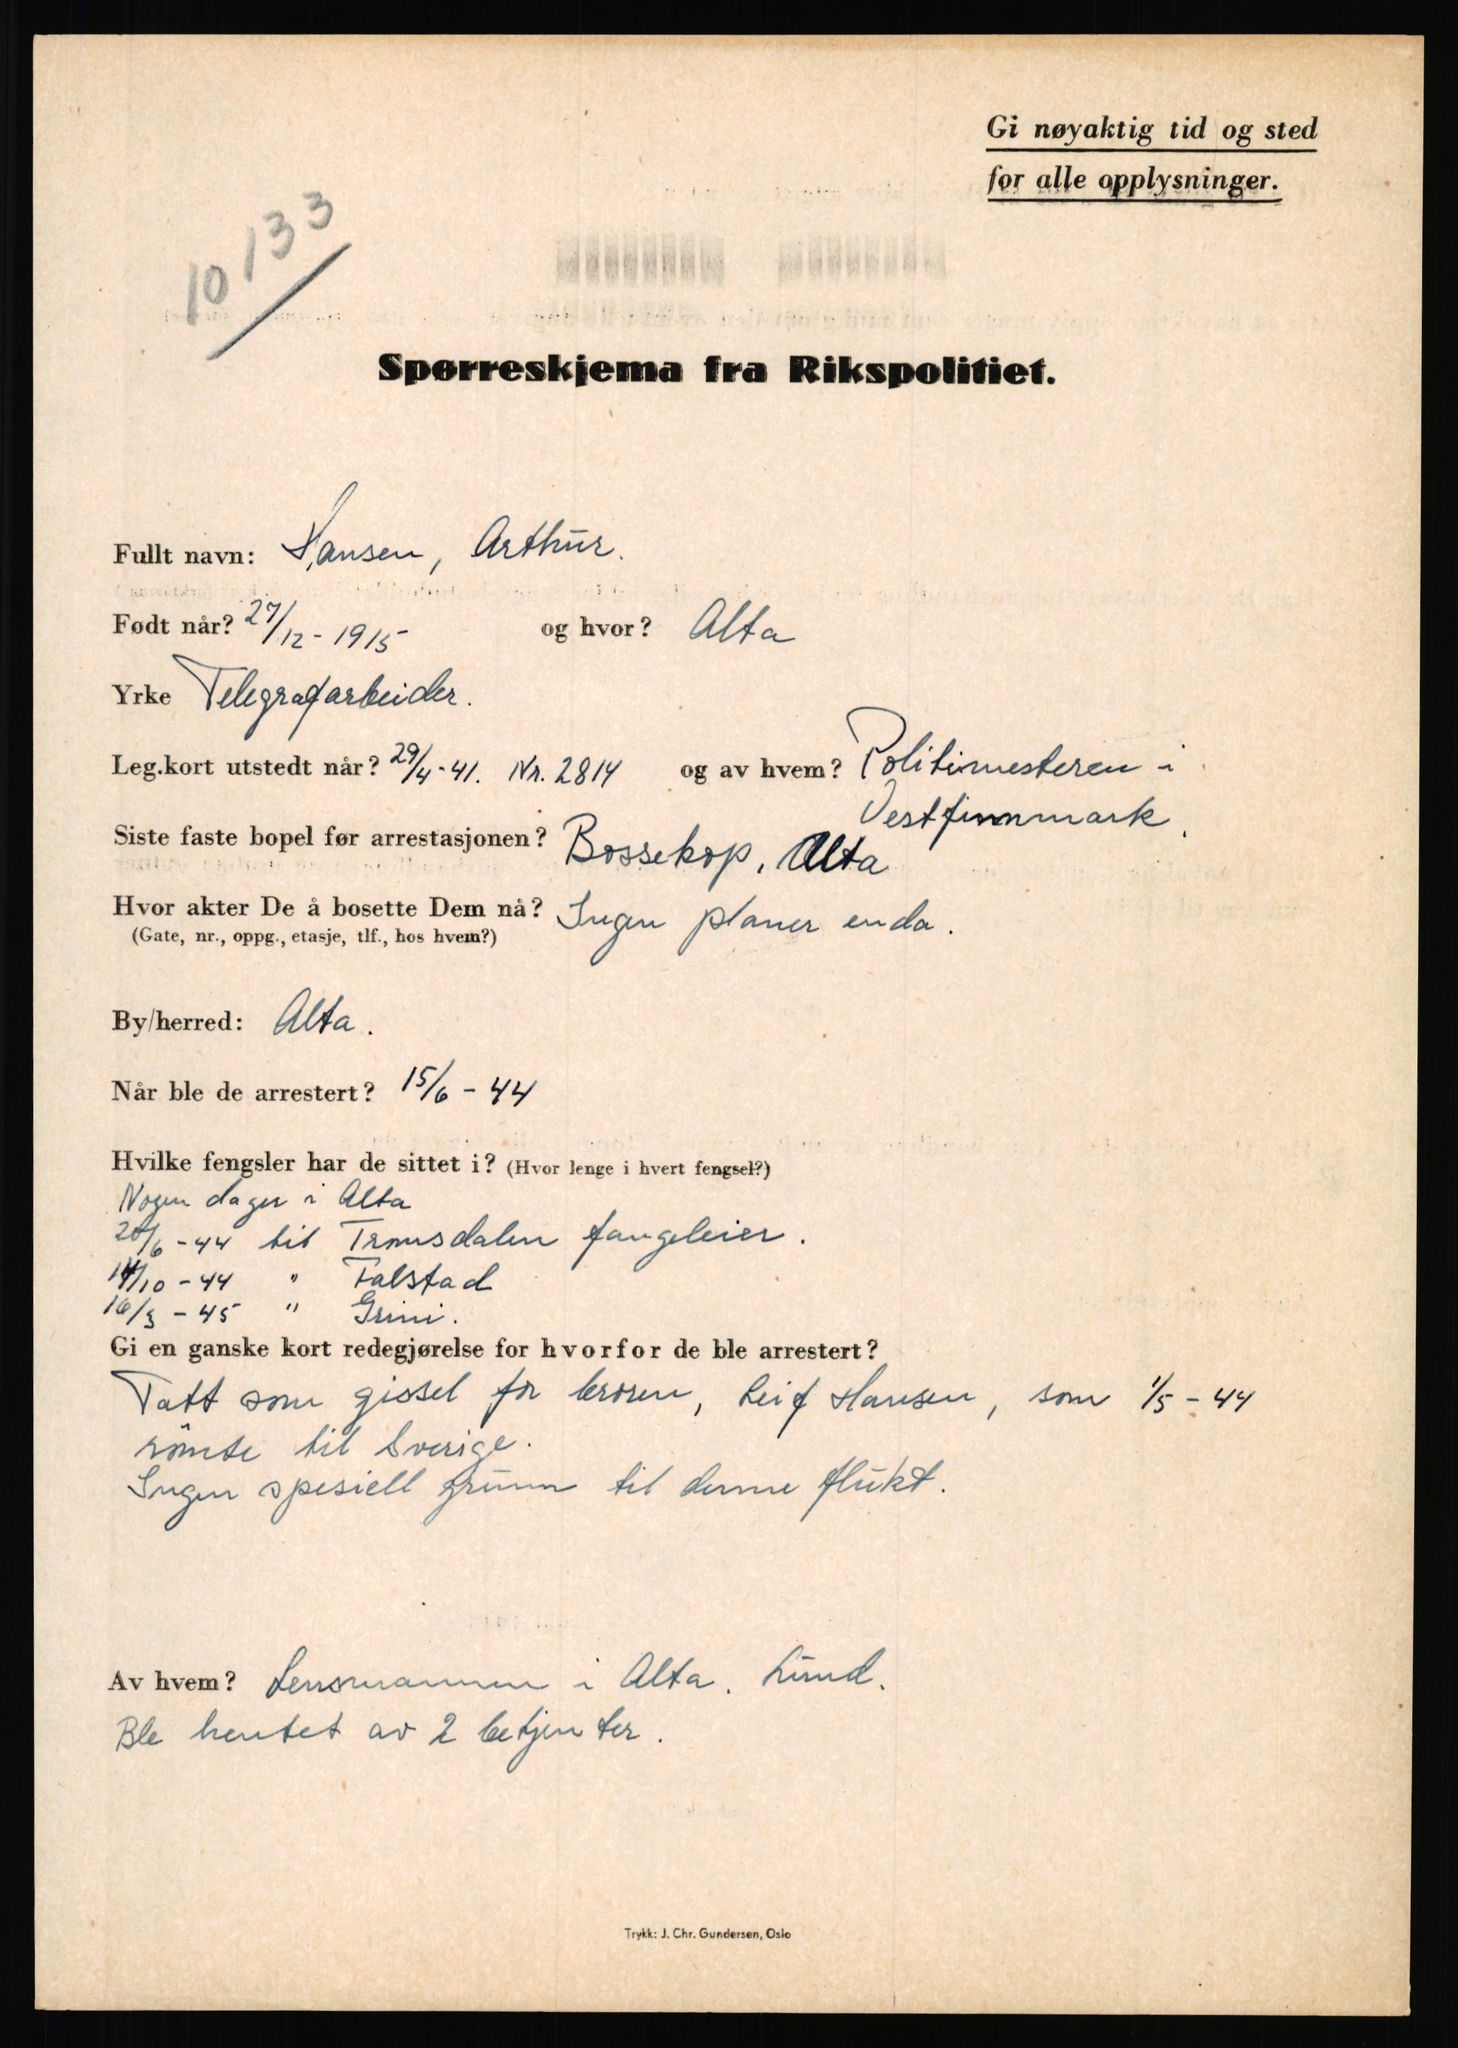 Gi nøyaktig tid og sted
for alle opplysninger.
10133
Spørreskjema fra Rikspolitiet.
Fullt navn: Hansen, Arthur.
Født når? 27/12-1915 og hvor? Alta
Yrke Telegrafarbeider.
Leg.kort utstedt når? 29/4-41. Nr. 2814 og av hvem? Politimesteren i
Vestfinnmark.
Siste faste bopel før arrestasjonen? Bossekop, Alta
Hvor akter De å bosette Dem nå? Ingen planer enda.
(Gate, nr., oppg., etasje, tlf., hos hvem?)
By/herred: Alta.
Når ble de arrestert? 15/6-44
Hvilke fengsler har de sittet i? (Hvor lenge i hvert fengsel?)
Nogen dager i Alta
20/6-44 til Tromsdalen fangeleier.
14/10-44 " Falstad
16/3-45 " Grini.
Gi en ganske kort redegjørelse for hvorfor de ble arrestert?
Tatt som gissel for broren, Leif Hansen, som 1/5-44
römte til Sverige.
Ingen spesiell grunn til denne flukt.
Av hvem? Lensmannen i Alta. Lund.
Ble hentet av 2 betjenter.
Trykk: J. Chr. Gundersen, Oslo